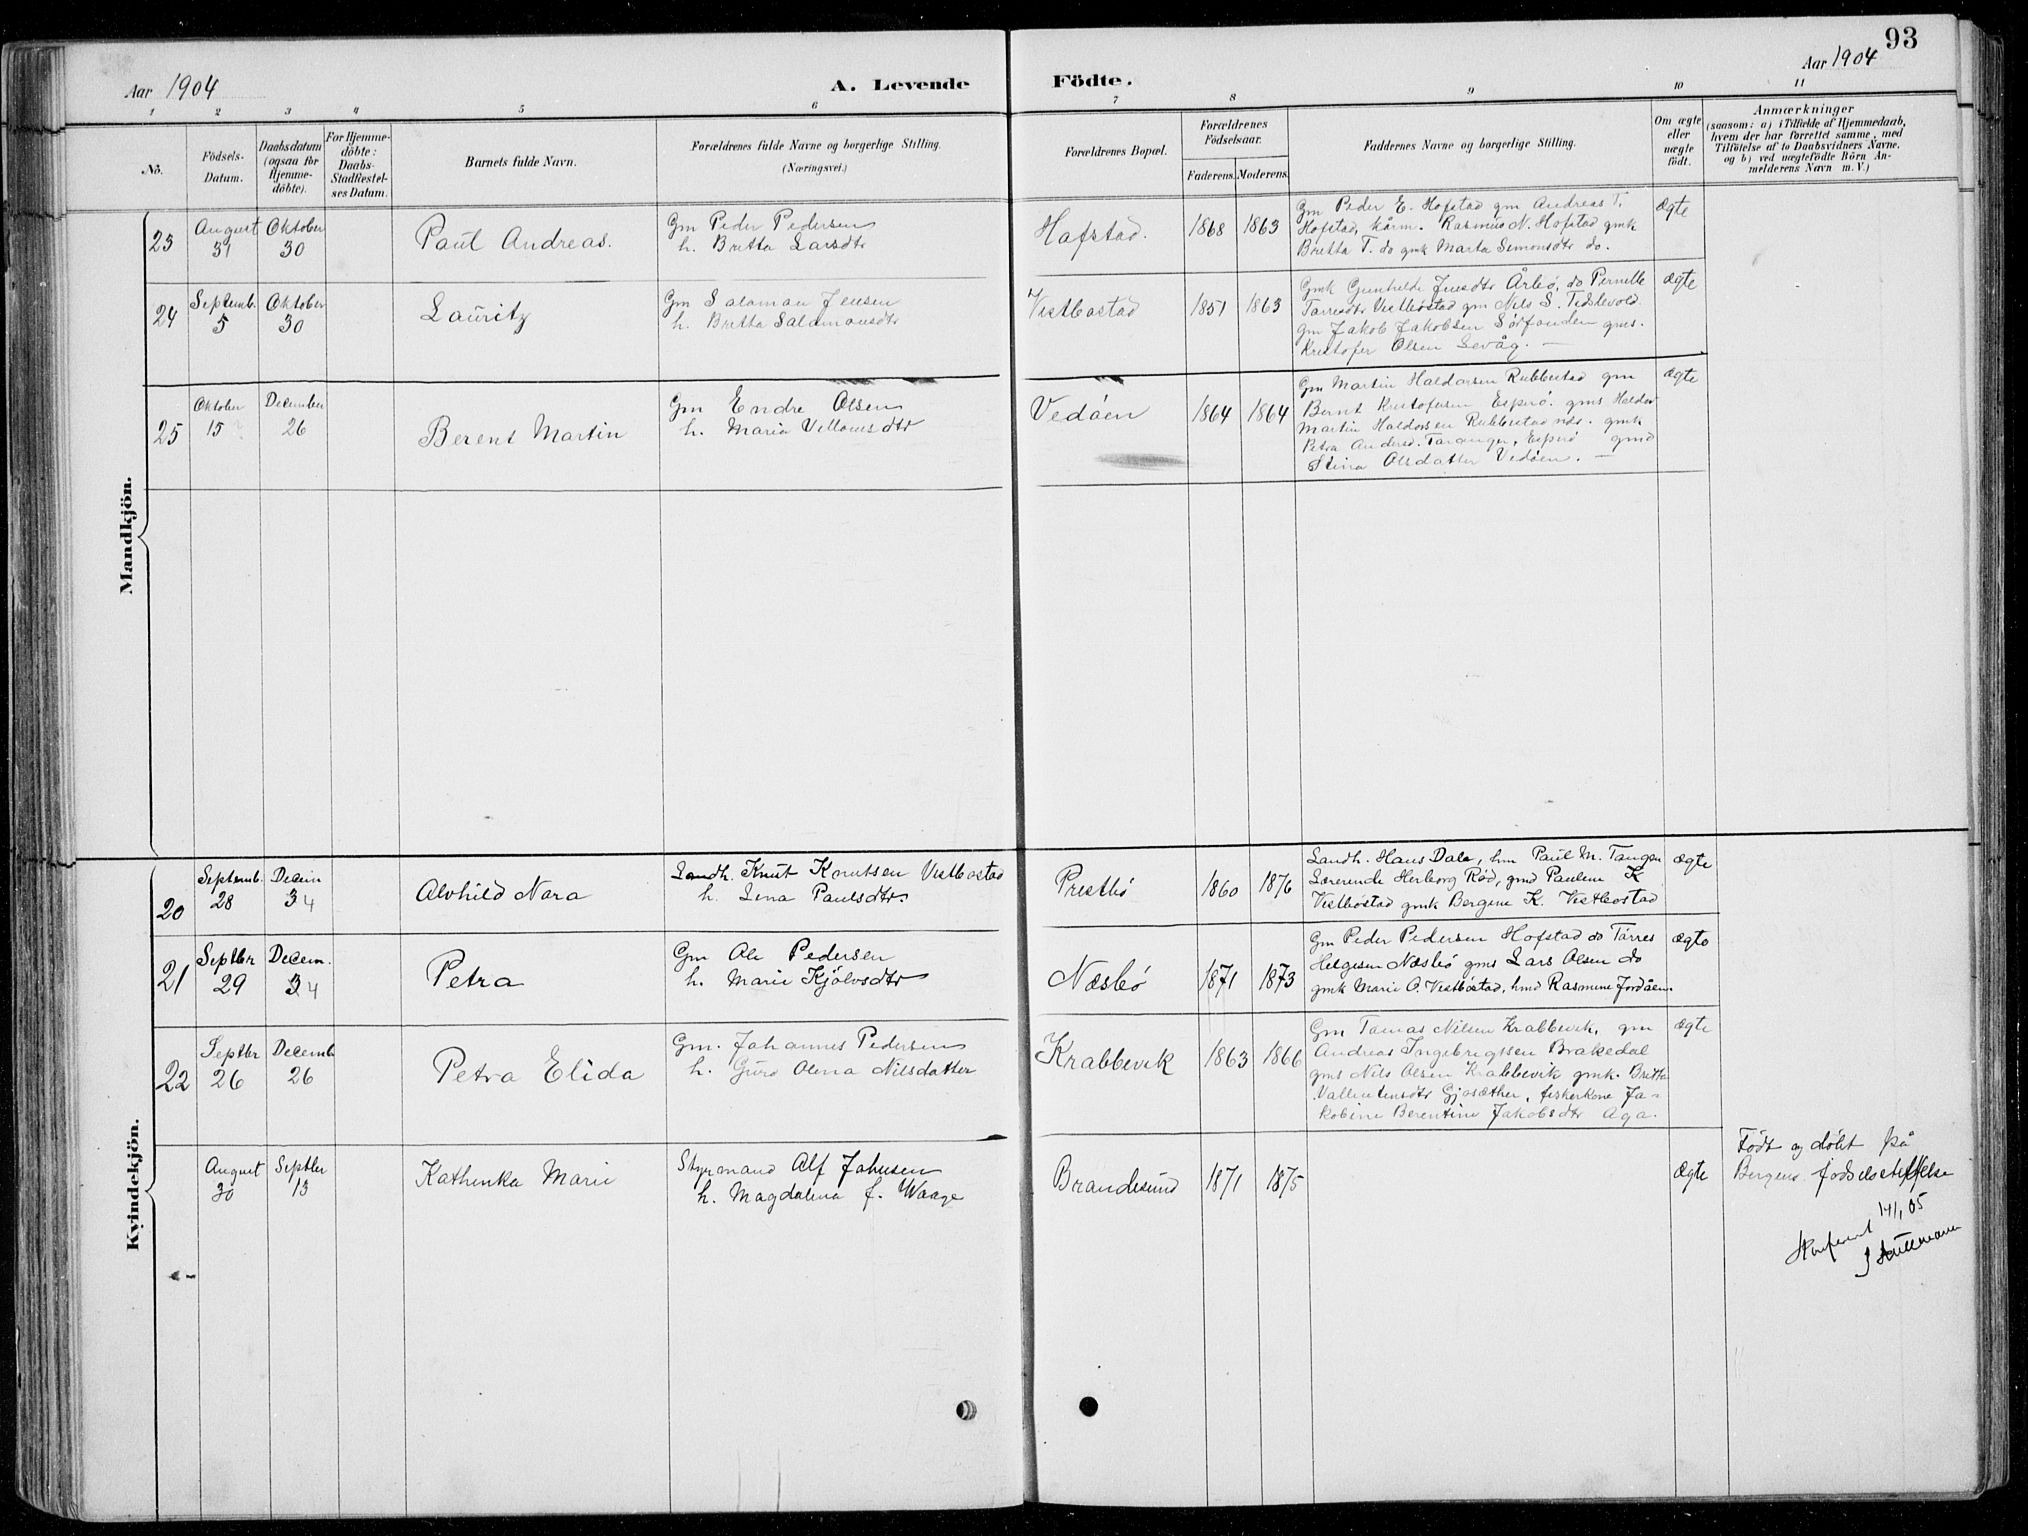 93
Aar 1904
A. Levende Födte.
Aar 1904
1 2 3 4 5 6 7 8 9 10 11
No.
Födsels-
Datum.
Daabsdatum
(ogsaa for
Hjemme-
döbte).
For Hjemme-
döbte:
Daabs-
Stadfæstel-
ses Datum.
Barnets fulde Navn.
Forældrenes fulde Navne og borgerlige Stilling.
(Næringsvei.)
Forældrenes Bopæl.
Forældrenes
Födselsaar.
Faderens. Moderens.
Faddernes Navne og borgerlige Stilling.
Om ægte
eller
uægte
födt.
Anmærkninger
(saasom: a) i Tilfælde af Hjemmedaab,
hvem der har forrettet samme, med
Tilföielse af to Daabsvidners Navne.
og b) ved uægtefödte Börn An-
melderens Navn m. V.)
Mandkjön.
23
August
31
Oktober
30
Paul Andreas.
Gm Peder Pedersen
h. Britta Larsdtr
Hafstad.
1868 1863
Gm Peder E. Hofstad gm Andreas T.
Hofstad, kårm. Rasmus N. Hofstad gmk
Britta T. do gmk Marta Simonsdtr do.
Ægte
24
Septemb.
5
Oktober
30
Lauritz
Gm Salaman Jensen
h. Britta Salamonsdtr
Vestbøstad
1851 1863
Gmk Gunhilde Jensdtr Årbø, do Pernille
Tørresdtr Vestbøstad gm Nils S.
gm Jakob Jakobsen Sørfonden gms.
Kristofer Olsen Sevåg. —
Ægte
25
Oktober
15
December
26
Berent Martin
Gm Endre Olsen
h. Maria Villomsdtr
Vedøen
1864 1864
Gm Martin Haldorsen Rubbestad gm
Bernt Kristofersen Esperø. gms Haldor
Martin Haldorsen Rubbestadnds. gmk
Petra Andersd. Taranger, Esperø gmd
Stina Olsdatter Vedøen. —
Ægte
Kvindekjön.
20
Septemb.
28
Decem
34
Alvhild Nora
Landh. Knut Knutsen Vestbøstad
h. Lina Paulsdtr.
Prestbø
1860 1876
Landh. Hans Dale, hm Paul M. Tangen
Lærerinde Herborg Rød, gmd Pauline K
Vestbøstad gmk Bergine K. Vestbøstad
Ægte
21
Septbr
29
Decem.
34
Petra
Gm Ole Pedersen
h. Marie Kjølvsdtr
Næsbø
1871 1873
Gm Peder Pedersen Hofstad do Tørres
Helgesen Næsbø gms Lars Olsen do
gmk Marie O. Vestbøstad, hmd Rasmine Jordåen.
Ægte
22
Septbr
26
Decemb
26
Petra Elida
Gm. Johannes Pedersen
h. Guro Olena Nilsdatter
Krabbevik
1863 1866
Gm Tomas Nilsen Krabbevik, gm
Andreas Ingebrigtsen Brakedal
gms Nils Olsen Krabbevik gmk. Britta
Vallentinsdtr Gjøsæther, fiskerkone Ja-
kobine Berentine Jakobsdtr Aga.
Ægte
August
30
Septbr
13
Kathinka Marie
Styrmand Alf Johnsen
h. Magdalena f. Waage
Brandesund
1871 1875
Ægte
Født og døbt på
Bergens fødselsstiftelse
14/1 05
Konfereret